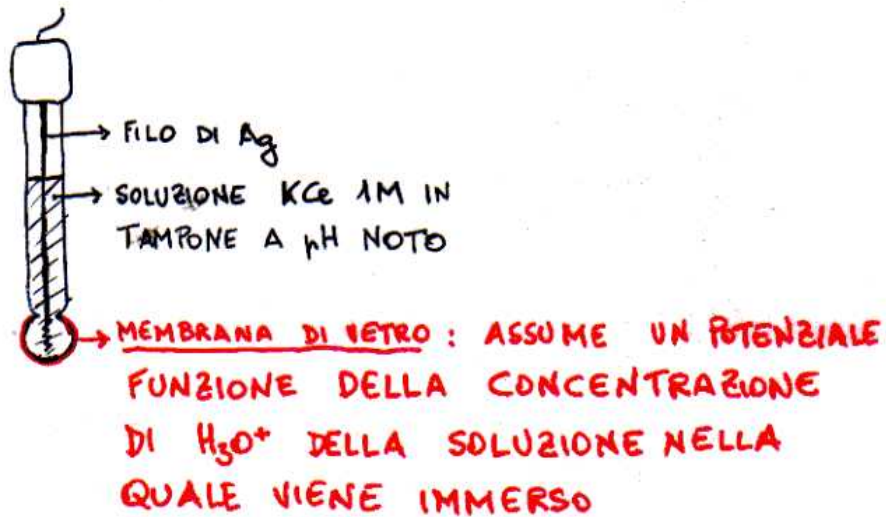 FILO DI Ag
SOLUZIONE KCl 1M IN
TAMPONE A pH NOTO
MEMBRANA DI VETRO : ASSUME UN POTENZIALE
FUNZIONE DELLA CONCENTRAZIONE
DI H₃O⁺ DELLA SOLUZIONE NELLA
QUALE VIENE IMMERSO